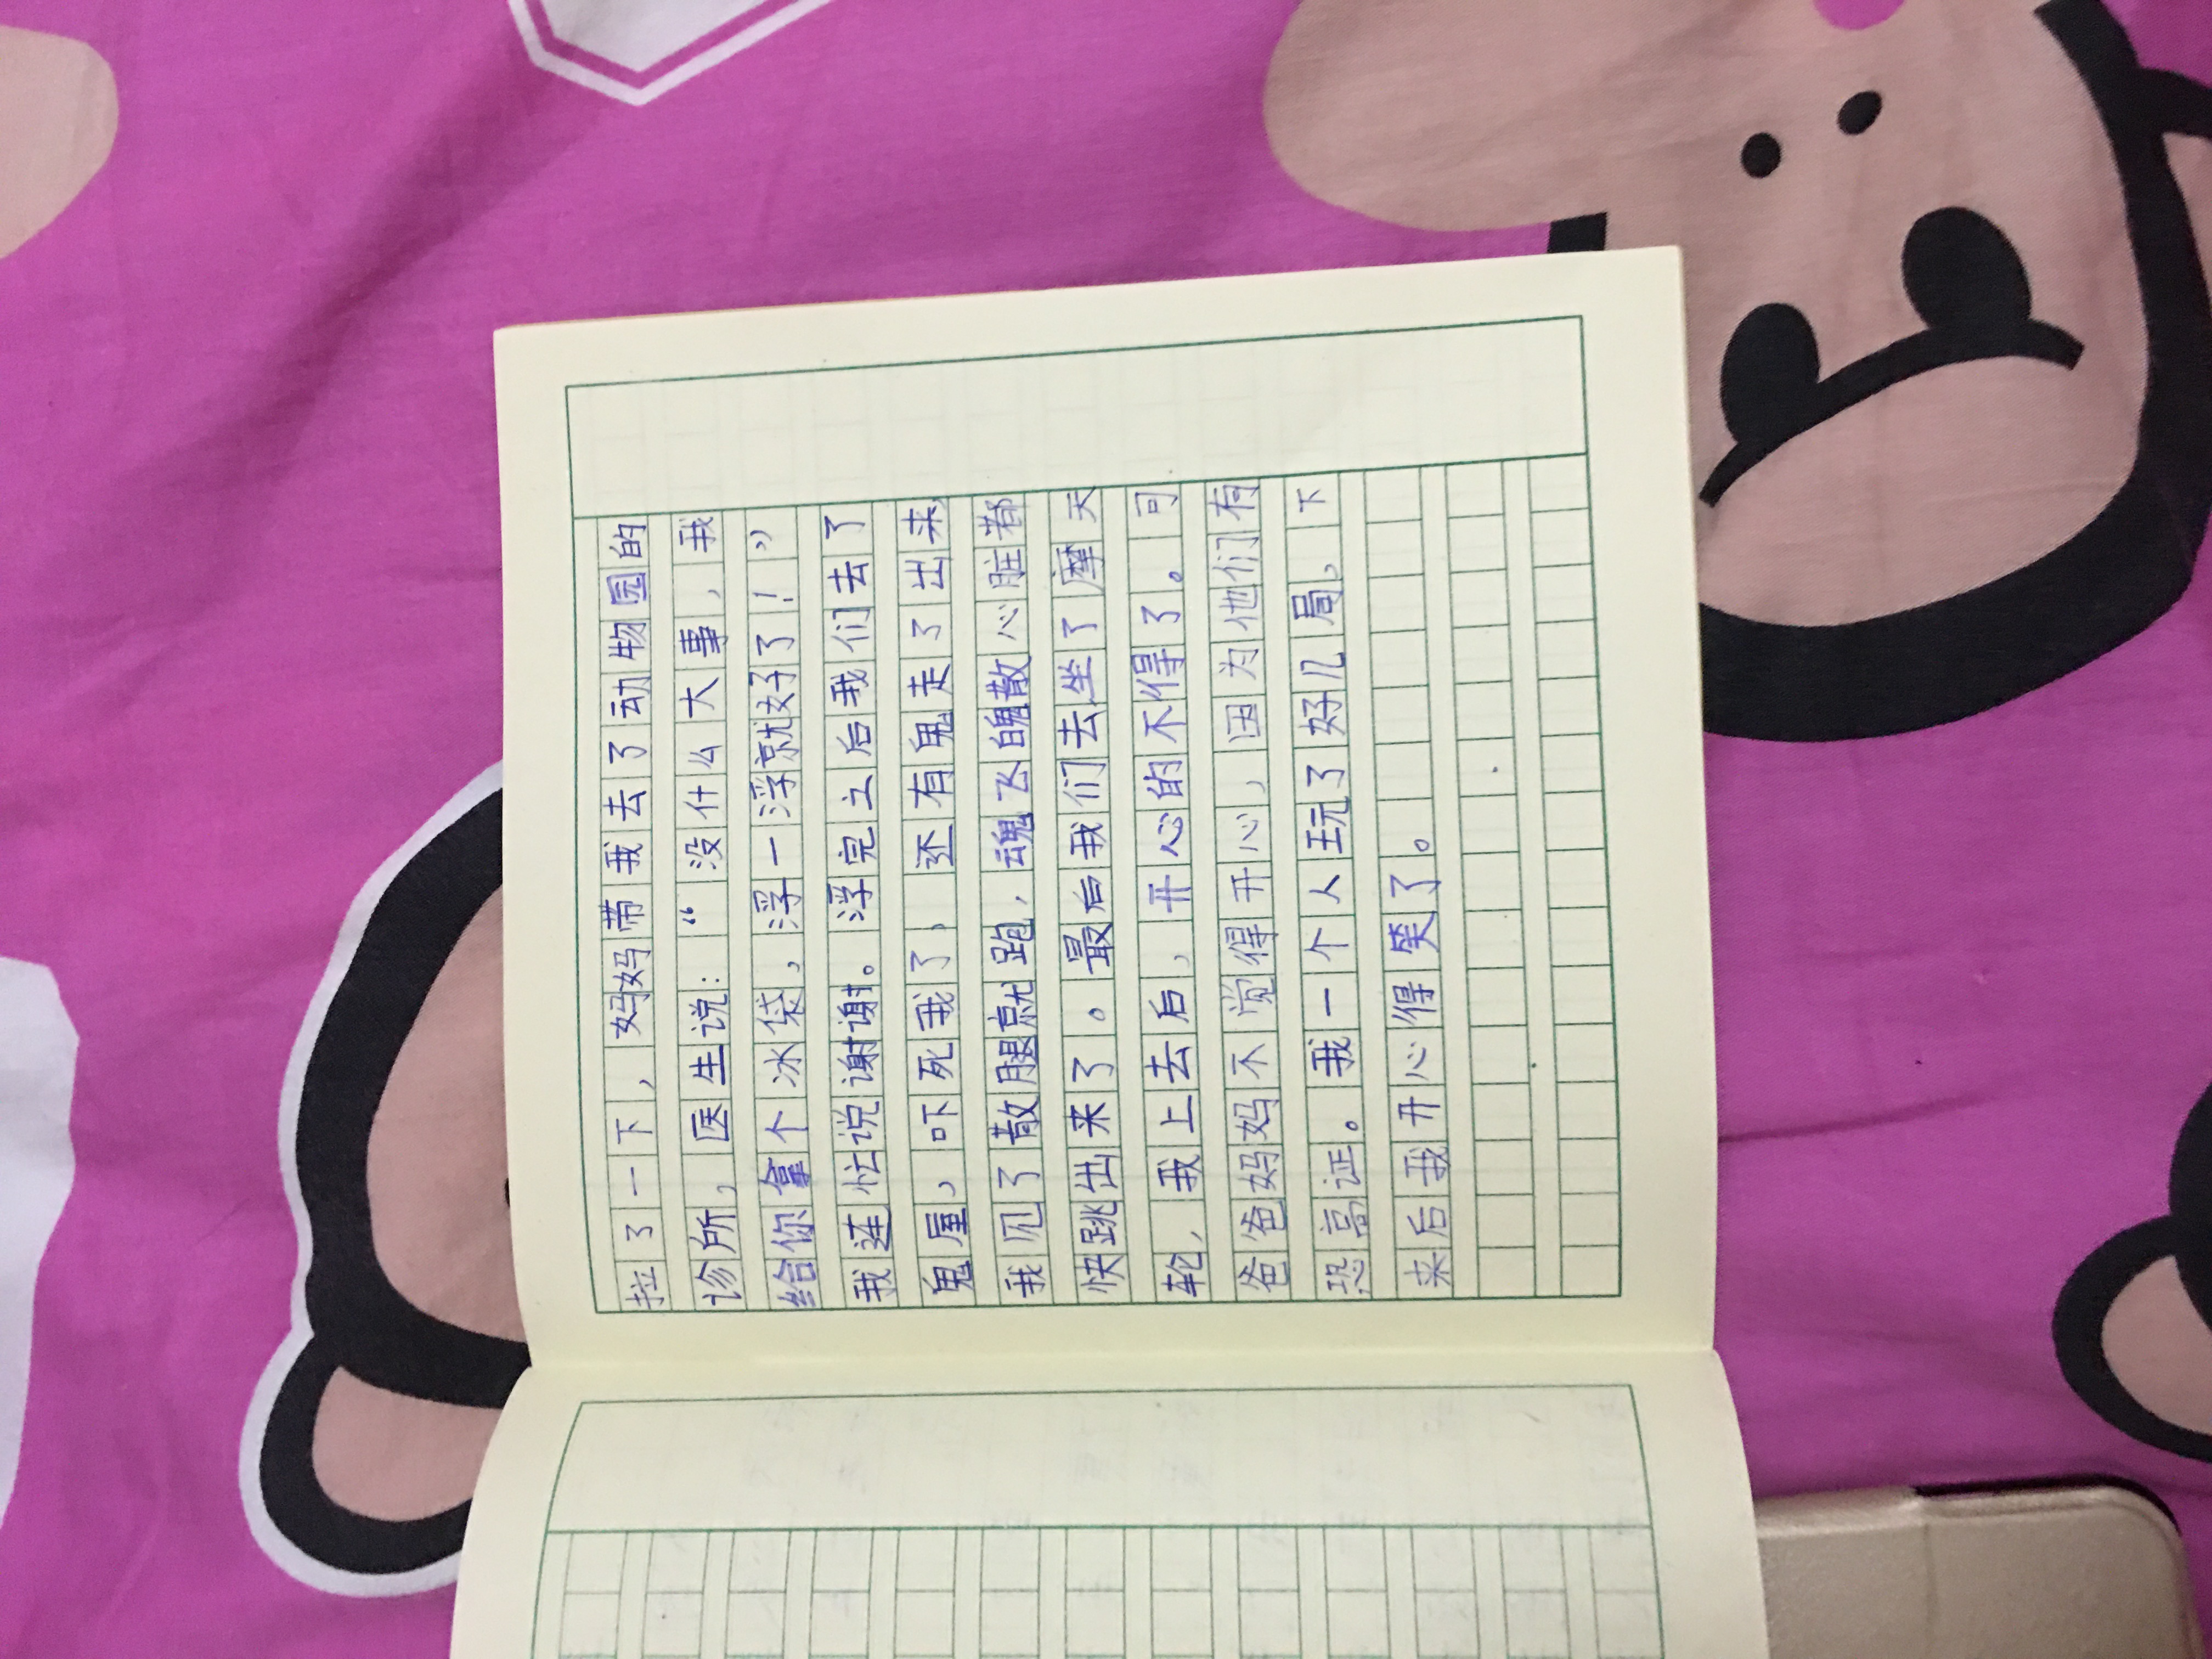 拉了一下，妈妈带我去了动物园的
诊所，医生说：“没什么大事，我
给你拿个冰袋，浮一浮就好了！”
我连忙说谢谢。浮完之后我们去了
鬼屋，吓死我了，还有鬼走了出来，
我见了散腿就跑，魂飞魄散心脏都
快跳出来了。最后我们去坐了摩天
轮，我上去后，开心的不得了。可
爸爸妈妈不觉得开心，因为他们有
恐高证。我一个人玩了好几局，下
来后我开心得笑了。